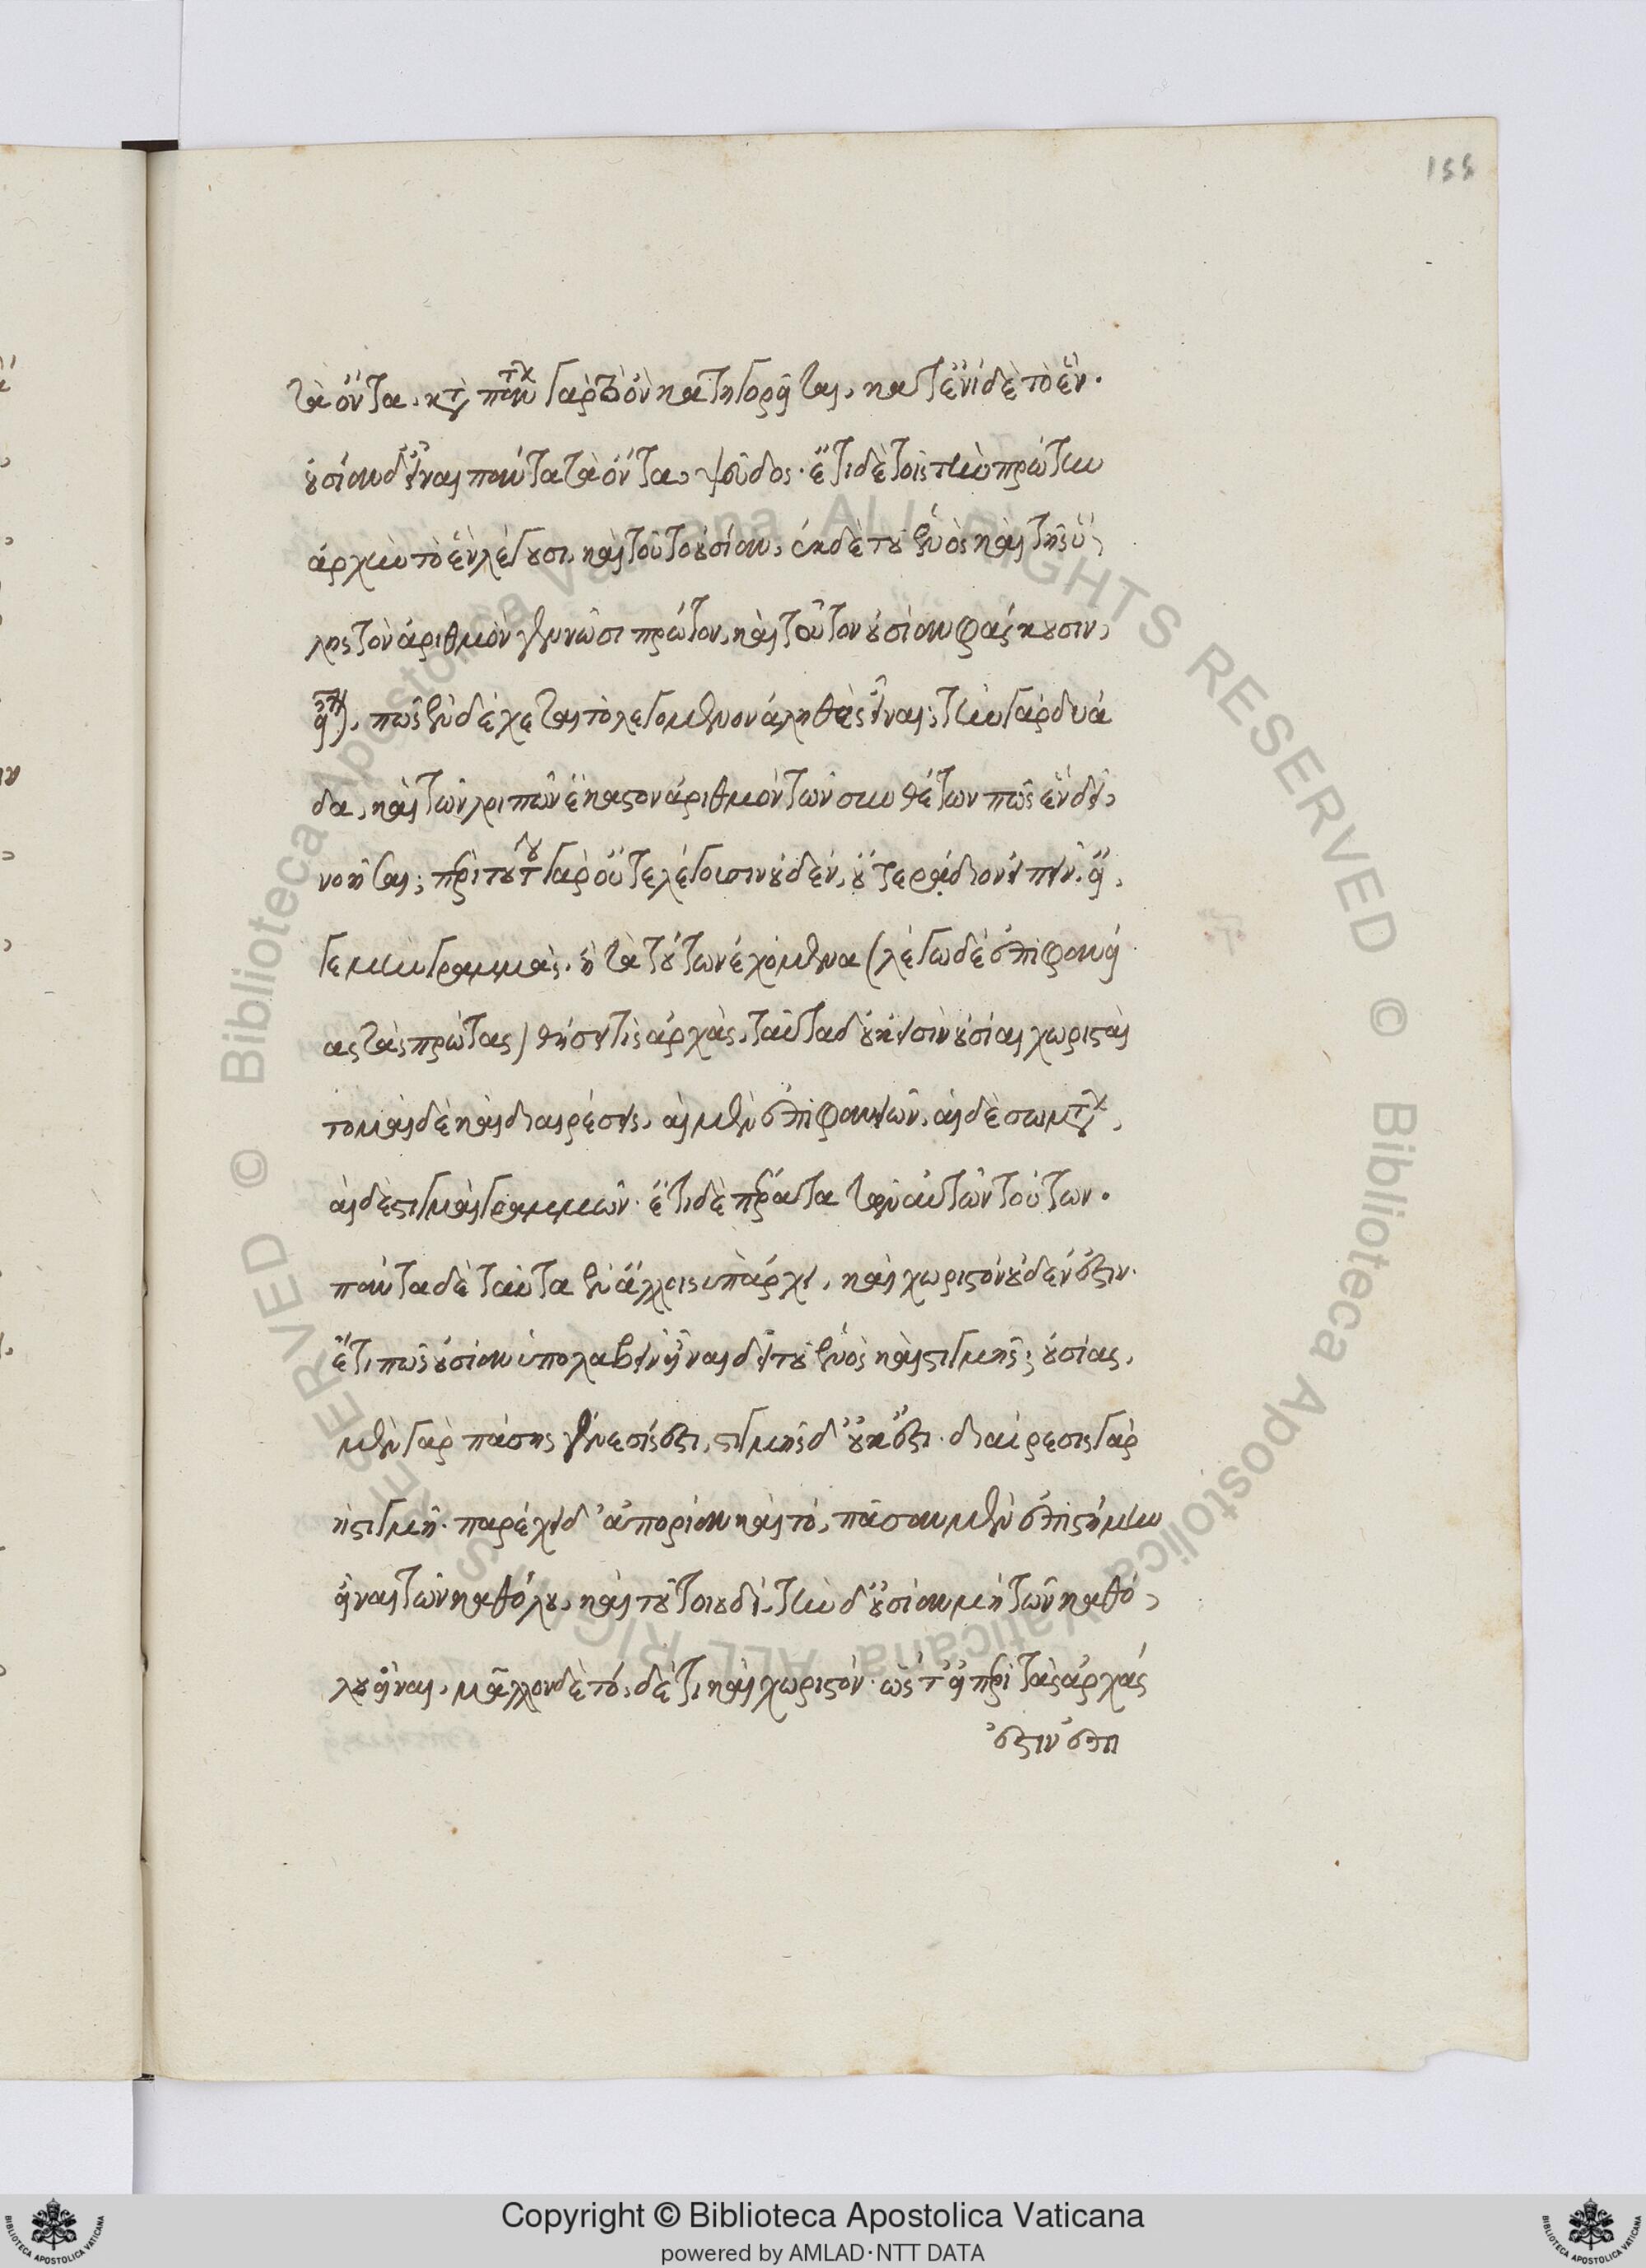 155
τὰ ὄντα, κατὰ πάντων γὰρ τὸ ὂν κατηγορεῖται, κατ' ἐνίων δὲ τὸ ἕν·
οὐσίαν δ' εἶναι πάντα τὰ ὄντα, ψεῦδος· ἔτι δὲ τοῖς τὴν πρώτην
ἀρχὴν τὸ ἓν λέγουσι, καὶ τοῦτο οὐσίαν, ἐκ δὲ τοῦ ἑνὸς καὶ τῆς ὕ-
λης τὸν ἀριθμὸν γεννῶσι πρῶτον, καὶ τοῦτον οὐσίαν φάσκουσιν,
εἶναι, πῶς ἐνδέχεται τὸ λεγόμενον ἀληθὲς εἶναι; τὴν γὰρ δυά
δα, καὶ τῶν λοιπῶν ἕκαστον ἀριθμὸν τῶν συνθέτων πῶς ἓν δεῖ,
νοῆσαι; περὶ τούτου γὰρ οὔτε λέγουσιν οὐδὲν, οὔτε ῥᾴδιον εἰπεῖν. εἴ,
γε μὴν γραμμὰς, ἢ τὰ τούτων ἐχόμενα (λέγω δὲ ἐπιφανεί
ας τὰς πρώτας) θήσει τὶς ἀρχὰς, ταῦτα δ' οὐκ εἰσὶν οὐσίαι χωρισταὶ
τομαὶ δὲ καὶ διαιρέσεις, αἱ μὲν ἐπιφανειῶν, αἱ δὲ σωμάτων,
αἱ δὲ στιγμαὶ γραμμῶν· ἔτι δὲ πέρατα τῶν αὐτῶν τούτων.
πάντα δὲ ταῦτα ἐν ἄλλοις ὑπάρχει, καὶ χωριστὸν οὐδέν ἐστιν·
ἔτι πῶς οὐσίαν ὑπολαβεῖν εἶναι δεῖ τοῦ ἑνὸς καὶ στιγμῆς; οὐσίας,
μὲν γὰρ πάσης γένεσίς ἐστι, στιγμῆς δ' οὐκ ἔστι· διαίρεσις γὰρ
ἡ στιγμή· παρέχει δ' ἀπορίαν καὶ τὸ, πᾶσαν μὲν ἐπιστήμην
εἶναι τῶν καθόλου, καὶ τοῦ τοιουδί. τὴν δ' οὐσίαν μὴ τῶν καθό-
λου εἶναι, μᾶλλον δὲ τό, δέ τι, καὶ χωριστόν· ὥστ' εἰ περὶ τὰς ἀρχάς
ἐστιν ἐπι
Copyright © Biblioteca Apostolica Vaticana
powered by AMLAD·NTT DATA